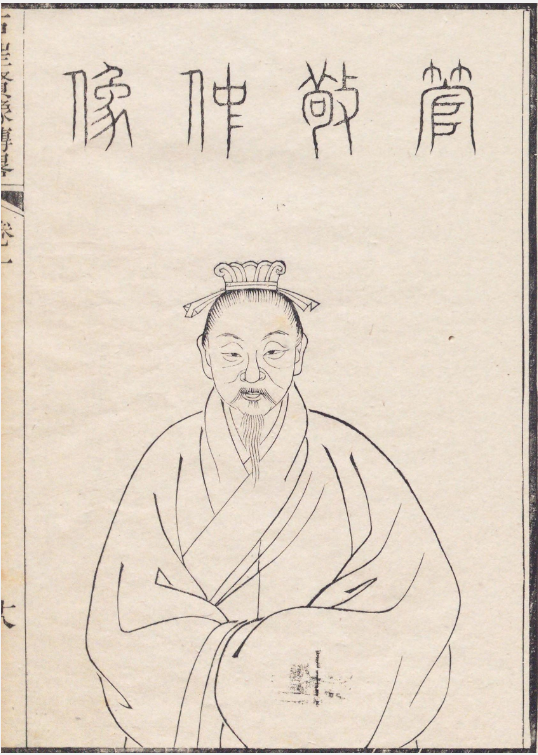 管敬仲像
聖賢像傳畧
卷一